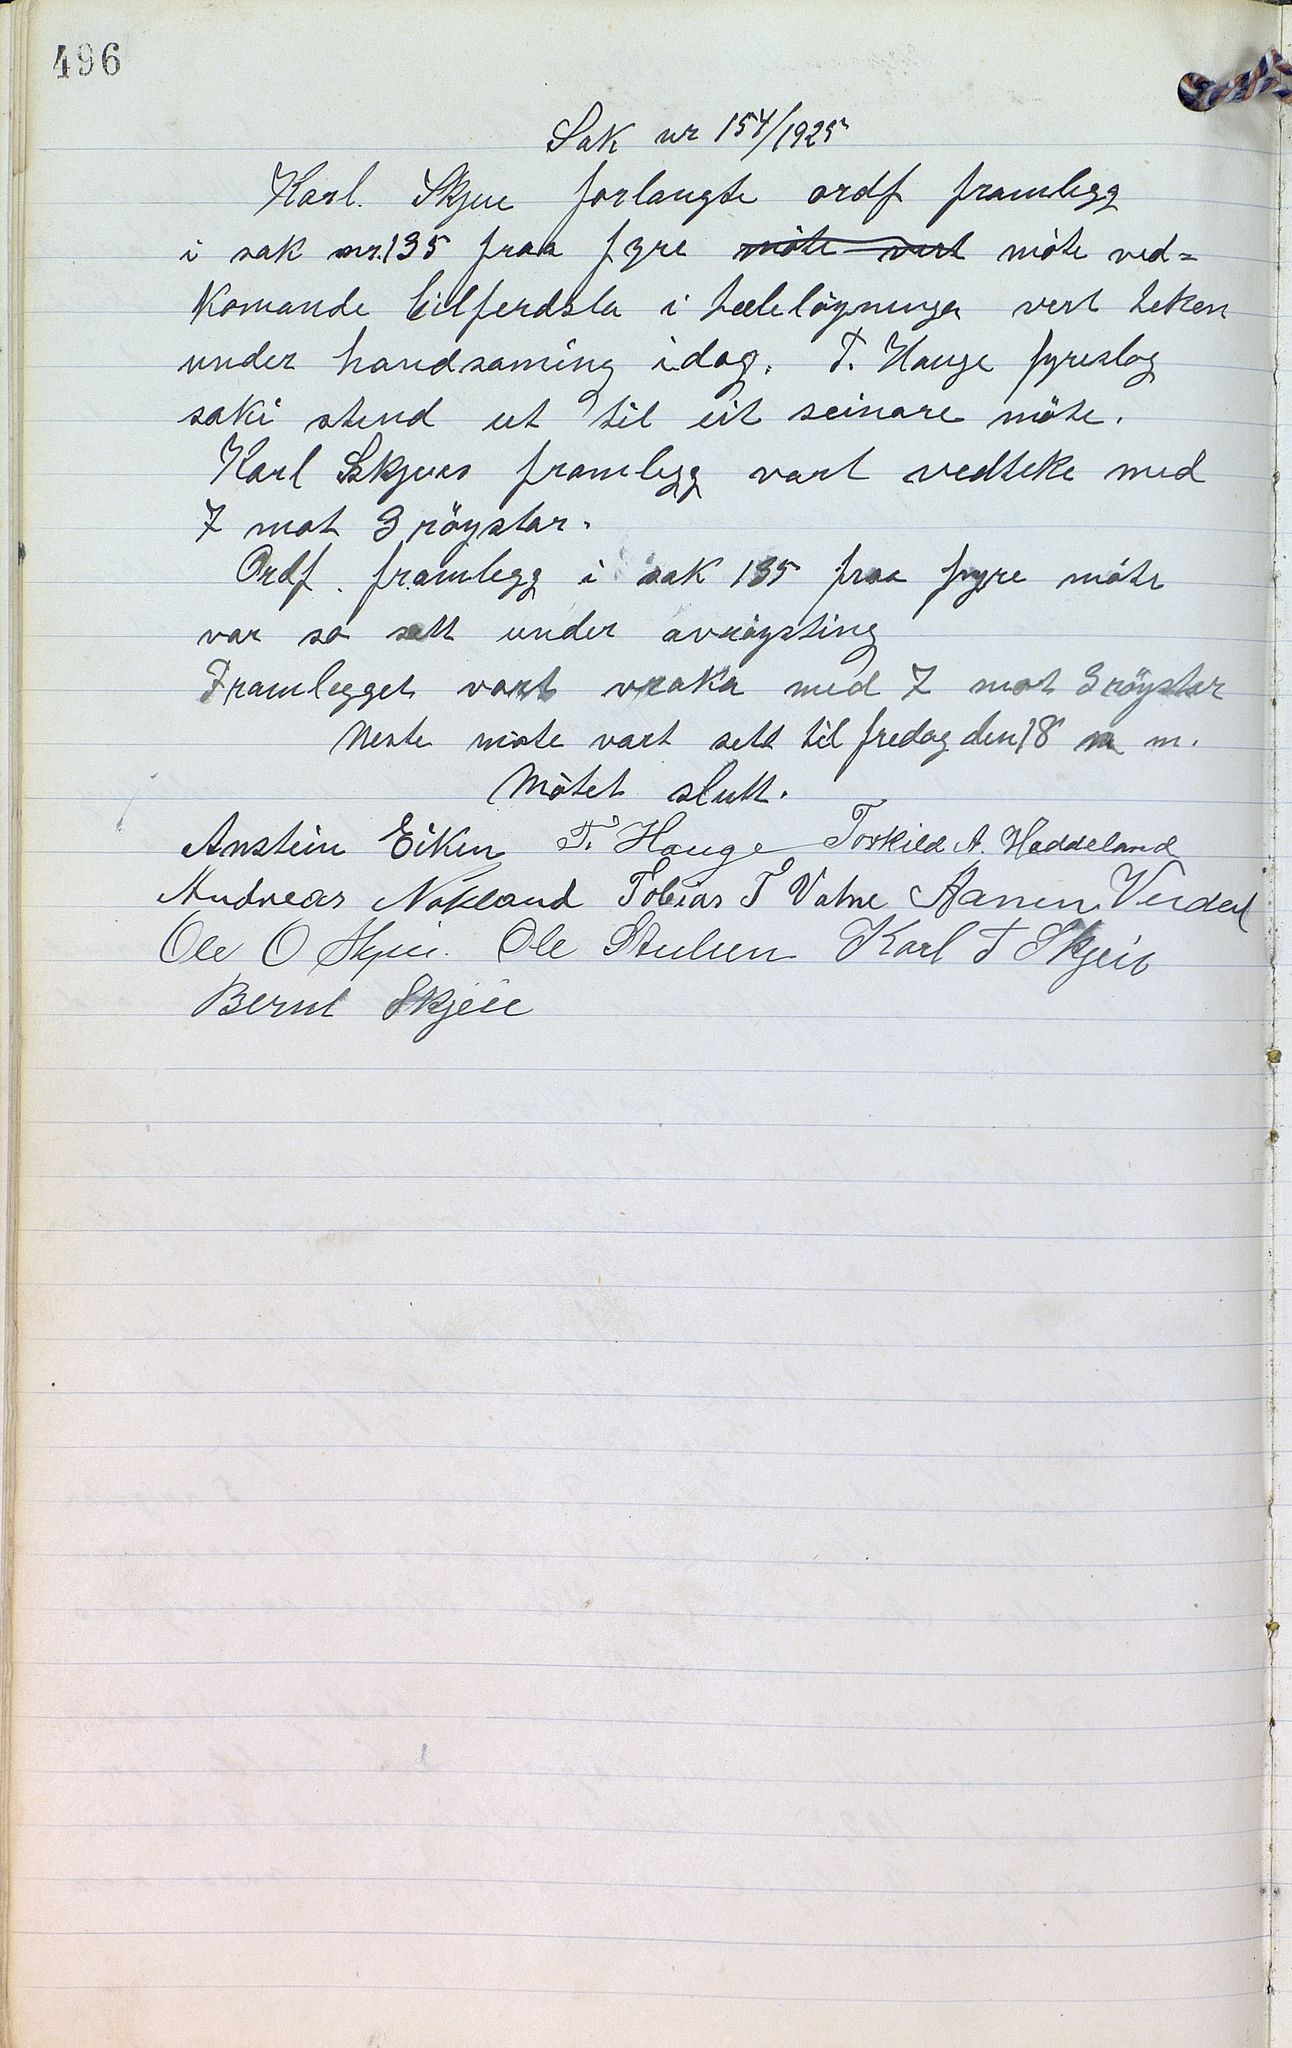 496
Sak nr 154/1925
Karl. Skjeie forlangte ordf framlegg
i sak nr. 135 fraa fyre møte vert møte ved=
komande bilferdsla i tæleløysninga vert teken
under handsaming idag. T. Hauge fyreslog
saki stend ut til eit seinare møte.
Karl Skjeies framlegg vart vedteke med
7 mot 3 röystar.
Ordf. framlegg i sak 135 fraa fyre møte
var so sett under avröysting
Framlegget vart vraka med 7 mot 3 röystar
Neste møte vart sett til fredag den 18 m.
Møtet slutt.
Anstein Eiken T. Hauge Torkild A. Haddeland
Andreas Nökland Tobias T Vatne Aanen
Ole O Skjeie. Ole Karl T Skjeie
Bernt Skjeie